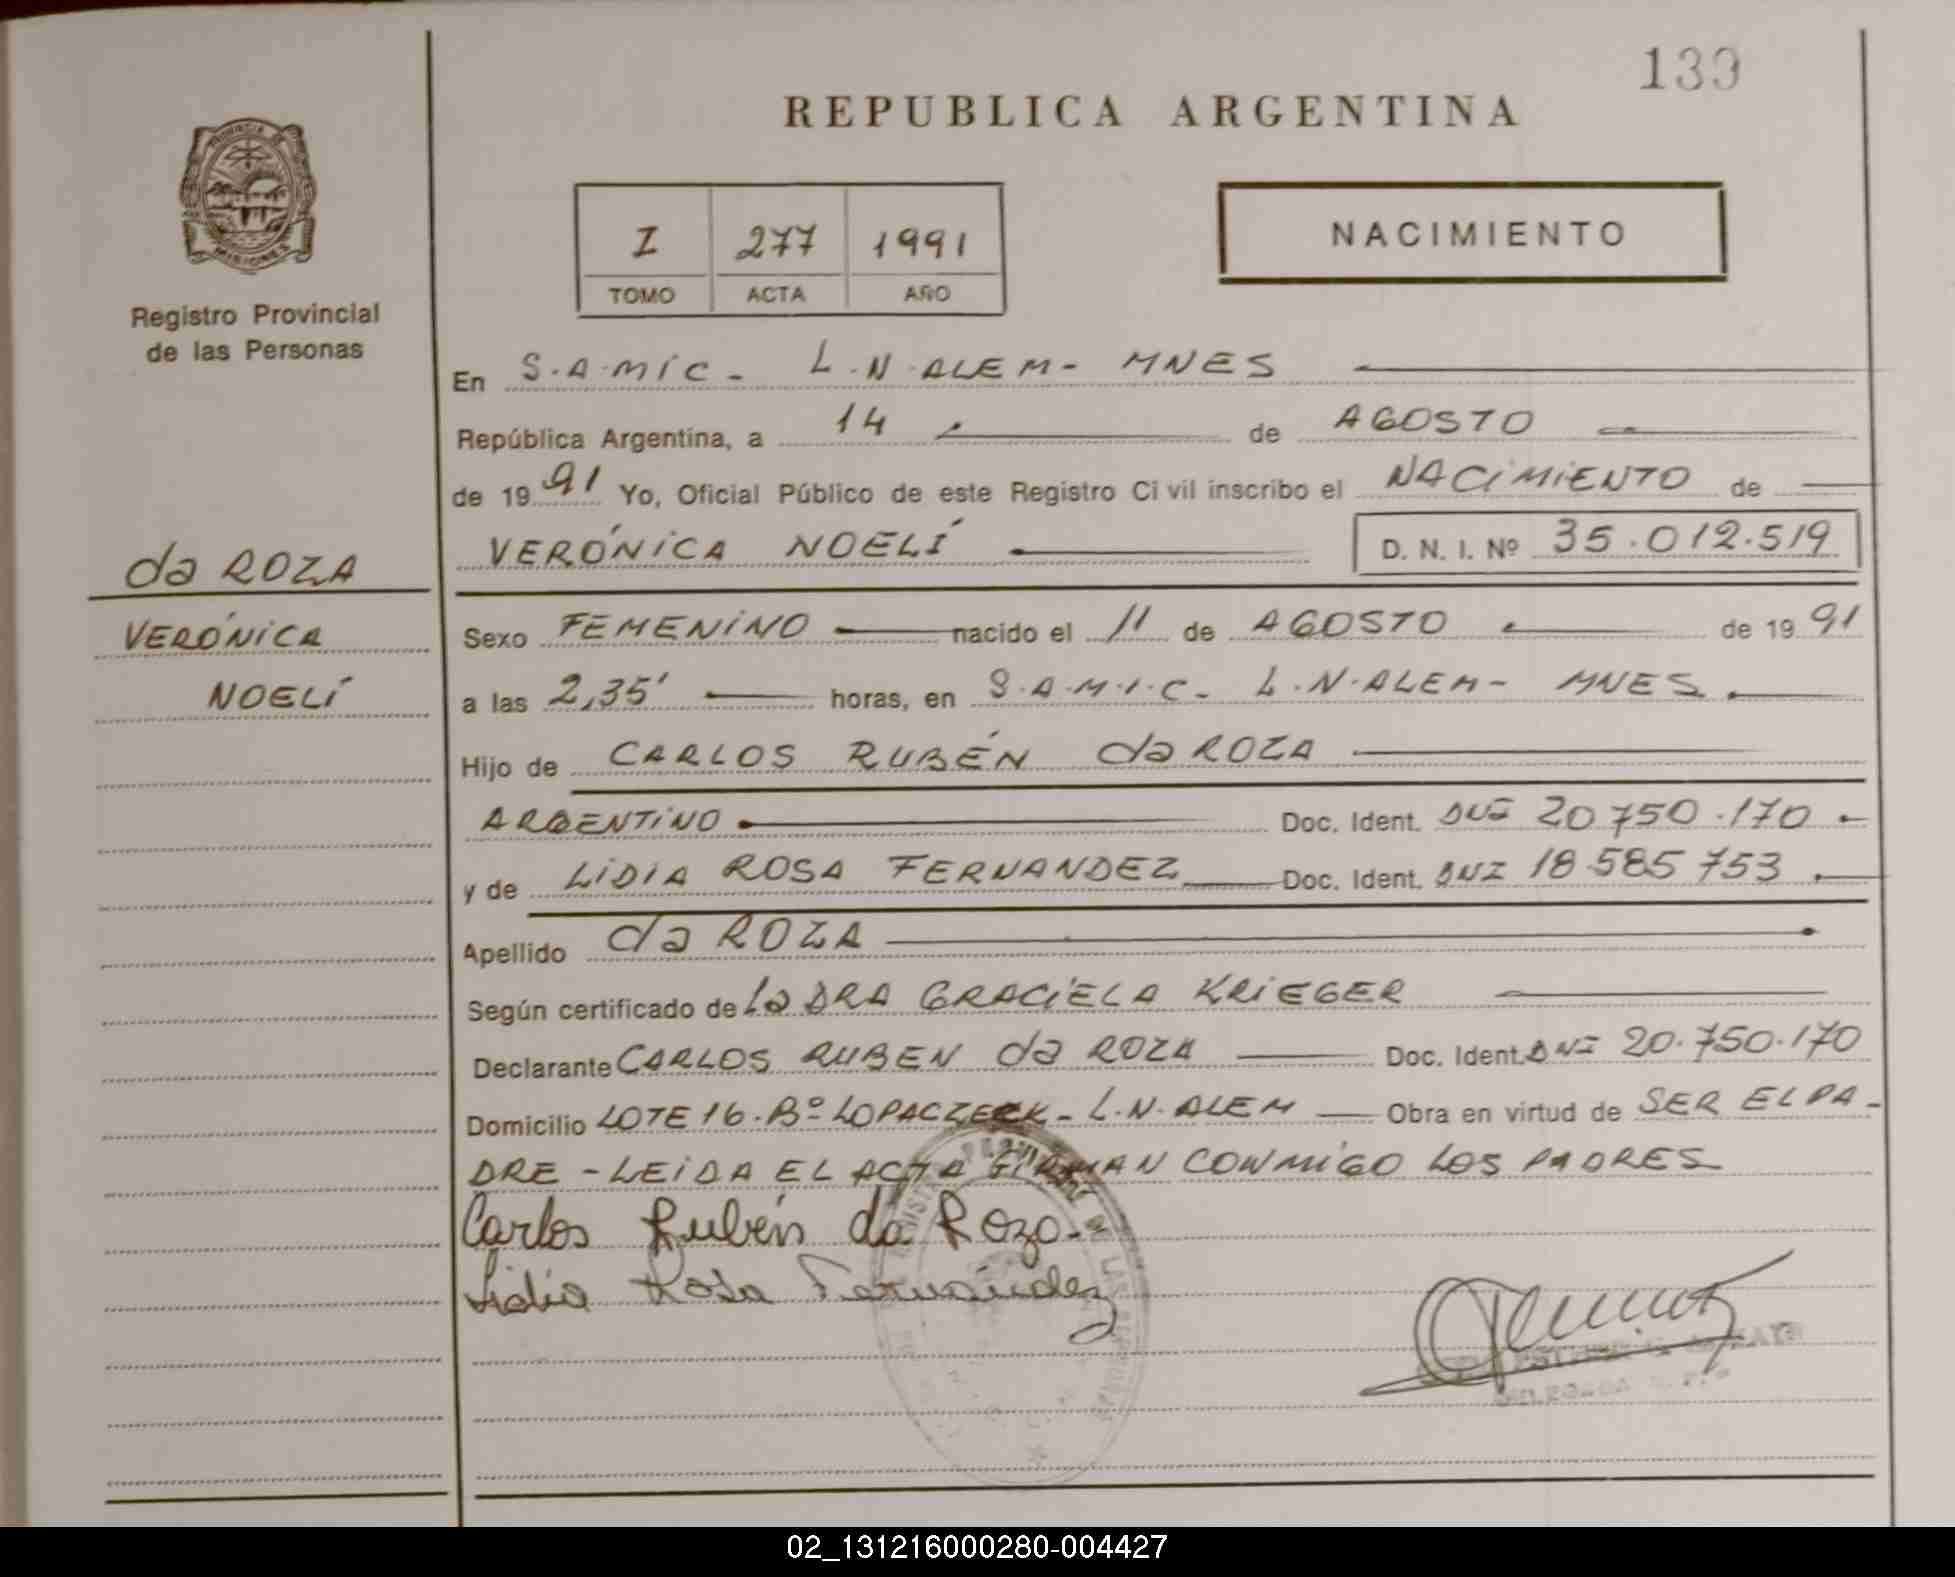 139
REPUBLICA ARGENTINA
PROVINCIA DE MISIONES
Registro Provincial
de las Personas
I 277 1991
TOMO ACTA AÑO
NACIMIENTO
En S.A.MIC - L.N.ALEM - MNES
República Argentina, a 14 de AGOSTO
de 1991 Yo, Oficial Público de este Registro Ci vil inscribo el NACIMIENTO de
VERÓNICA NOELÍ D. N. I. Nº 35.012.519
da ROZA
VERÓNICA
NOELÍ
Sexo FEMENINO nacido el 11 de AGOSTO de 1991
a las 2,35' horas, en S.A.M.I.C - L.N.ALEM - MNES
Hijo de CARLOS RUBÉN da ROZA
ARGENTINO Doc. Ident. DNI 20750.170
y de LIDIA ROSA FERNANDEZ Doc. Ident. DNI 18.585753
Apellido da ROZA
Según certificado de La DRA GRACIELA KRIEGER
Declarante CARLOS RUBEN da ROZA Doc. Ident. DNI 20.750.170
Domicilio LOTE 16 - Bº LOPACZECK - L.N. ALEM Obra en virtud de SER EL PA-
DRE - LEIDA EL ACTA FIRMAN CONMIGO LOS PADRES
Carlos Rubén da Roza
Lidia Rosa Fernández
DELEGADA
02_131216000280-004427